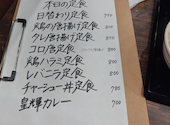 本日の定食
日替わり定食 770
鶏の唐揚げ定食 800
クレ唐揚げ定食 850
コロ唐定食 800
鶏ハラミ定食 800
レバニラ定食 800
チャーシュー丼定食 780
皇輝カレー 700